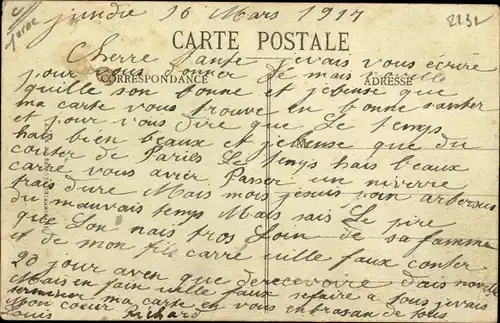 jeudie 16 Mars 1917
2232
Maroc
CARTE POSTALE
Cherre Tante je vais vous écrire
CORRESPONDANCE
ADRESSE
pour vous donner de mais
quille son bonne et jebense que
ma carte vous trouve en bonne santer
et pour vous dire que Le temps
hais bien beaux et jebense que du
couter de Paries Le temps hais beaux
carre vous aver Passer un niverre
trais dure Mais moi jesuis
du mauvais temp Mais sais Le pire
que Lon nais tros Loin de sa famme
et de mon fils carre ville faux conter
90 jour aven que derecevoire dais
Mais en fain ville faux sefaire a tous jevais
terminer ma carte en vous enbrasan de tous
mon coeur
Louis Richard